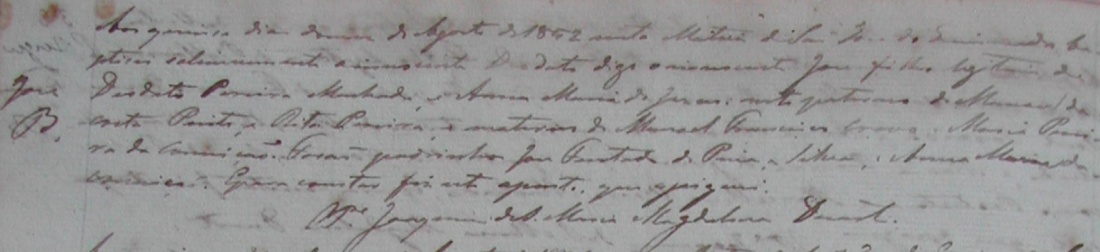 Aos quinze dias do mes de Agosto de 1862 nesta Matriz de São José
ptisei solemnemente o innocente Deodato digo o innocente José filho legitimo de
José Deodato Pereira Machado, e Anna Maria de Jesus: neto paterno de Manoel da
B. costa e Rita Pereira, e materno de Manoel Francisco Maria Perei
ra da Conceição. Forão padrinhos José Furtado de e Anna Maria da
Conceição. E para constar fiz este que
Joaquim de S. Maria Magdalena Duarte.